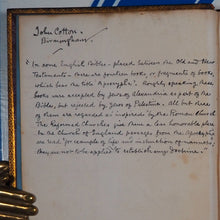 John Cotton.
Birmingham.
"In some English Bibles - placed between the Old and New
Testaments - there are fourteen books, or fragments of books,
which bear the title 'Apocrypha'. Roughly speaking, these
books were accepted by Jews of Alexandria as part of the
Bible, but rejected by Jews of Palestine. All but three
of them are regarded as inspired by the Roman Church
The Reformed Churches give them a less honourable
in the Church of England passages from the Apocrypha
are read 'for example of life and instruction of manners',
they are not to be applied to establish any doctrine."